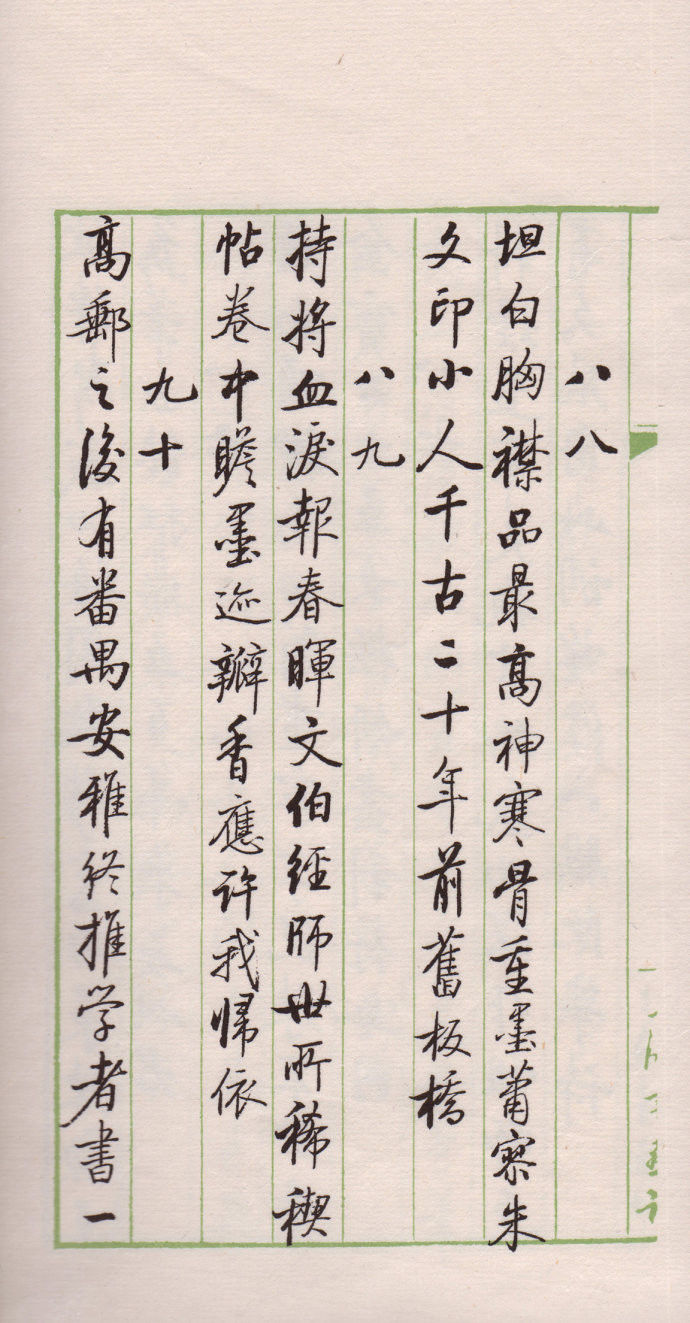 八八
坦白胸襟品最高神寒骨重墨蕭寥朱
文印小人千古二十年前舊板橋
八九
持將血淚報春暉文伯經師世所稀禊
帖卷中瞻墨迹瓣香應許我帰依
九十
高郵之後有番禺安雅終推学者書一